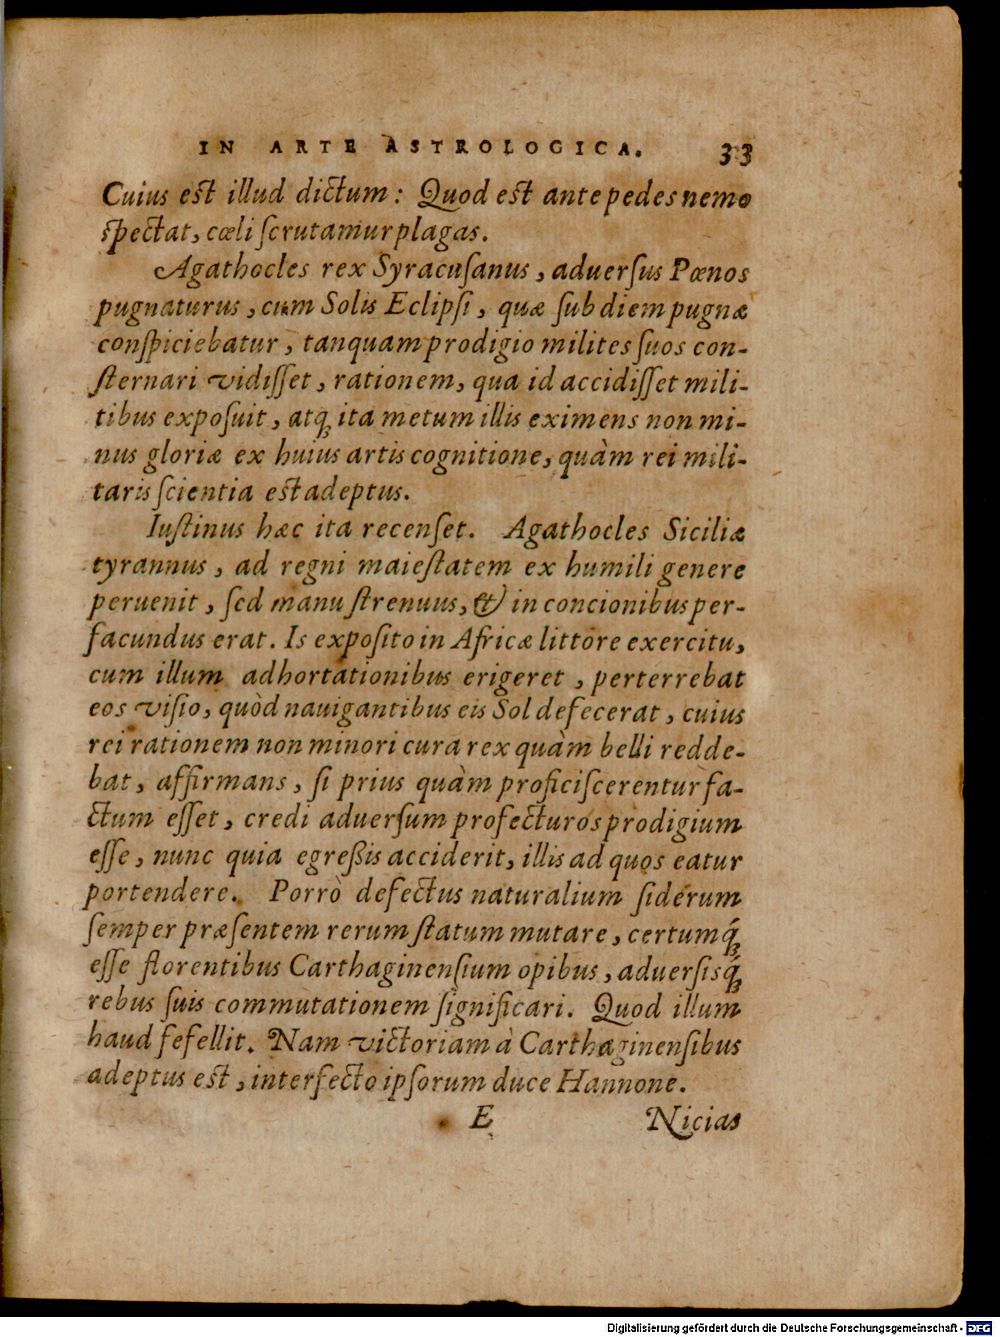 IN ARTE ASTROLOGICA. 33
Cuius est illud dictum: Quod est ante pedes nemo
spectat, cœli scrutamur plagas.
Agathocles rex Syracusanus, aduersus Pœnos
pugnaturus, cum Solis Eclipsi, quæ sub diem pugnæ
conspiciebatur, tanquam prodigio milites suos con-
sternari vidisset, rationem, qua id accidisset mili-
tibus exposuit, atq́ ita metum illis eximens non mi-
nus gloriæ ex huius artis cognitione, quàm rei mili-
taris scientia est adeptus.
Iustinus hæc ita recenset. Agathocles Siciliæ
tyrannus, ad regni maiestatem ex humili genere
peruenit, sed manu strenuus, & in concionibus per-
facundus erat. Is exposito in Africæ littore exercitu,
cum illum adhortationibus erigeret, perterrebat
eos visio, quòd nauigantibus eis Sol defecerat, cuius
rei rationem non minori cura rex quàm belli redde-
bat, affirmans, si prius quàm proficiscerentur fa-
ctum esset, credi aduersum profecturos prodigium
esse, nunc quia egreßis acciderit, illis ad quos eatur
portendere. Porrò defectus naturalium siderum
semper præsentem rerum statum mutare, certumq́
esse florentibus Carthaginensium opibus, aduersisq́
rebus suis commutationem significari. Quod illum
haud fefellit. Nam victoriam à Carthaginensibus
adeptus est, interfecto ipsorum duce Hannone.
E Nicias
Digitalisierung gefördert durch die Deutsche Forschungsgemeinschaft - DFG